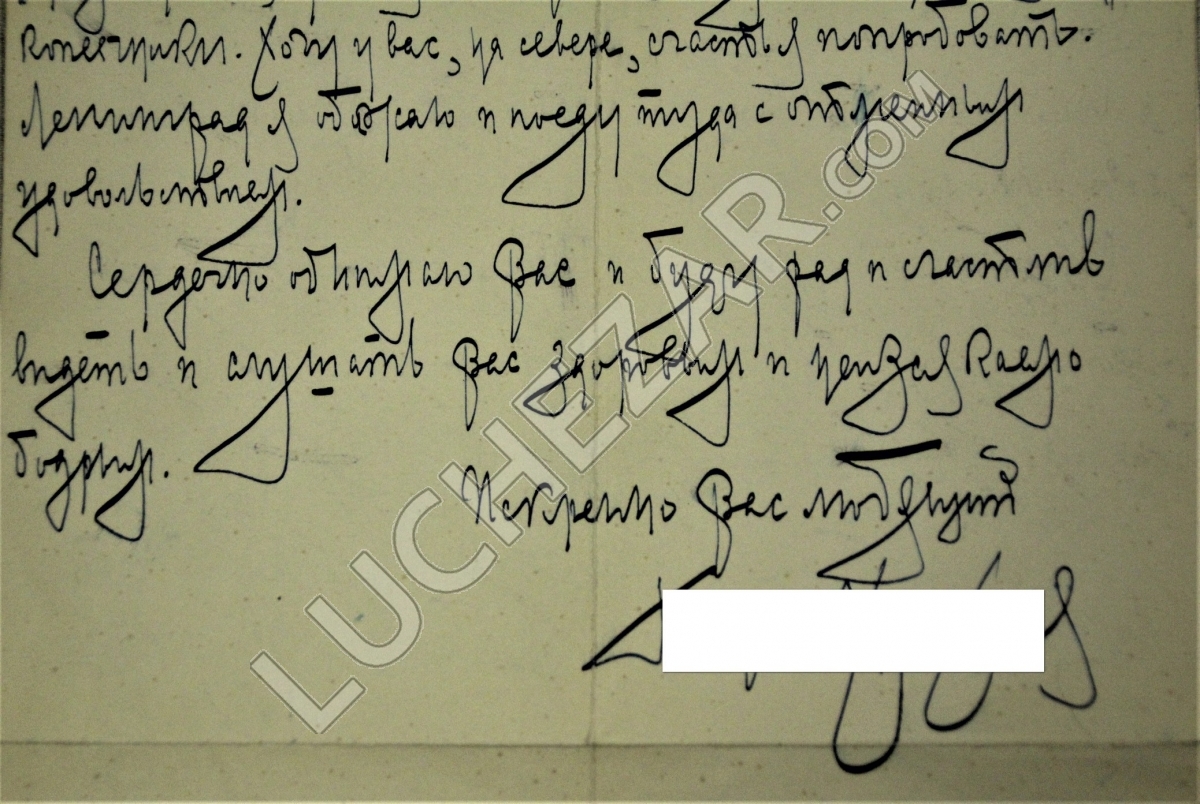 копеечники. Хочу у вас, на севере, счастья попробовать.
Ленинград я обожаю и поеду туда с отменным
удовольствием.
Сердечно обнимаю Вас и буду рад и счастлив
видеть и слушать Вас здоровым и неизменно
бодрым.
Искренно Вас любящий
LUCHEZAR.COM